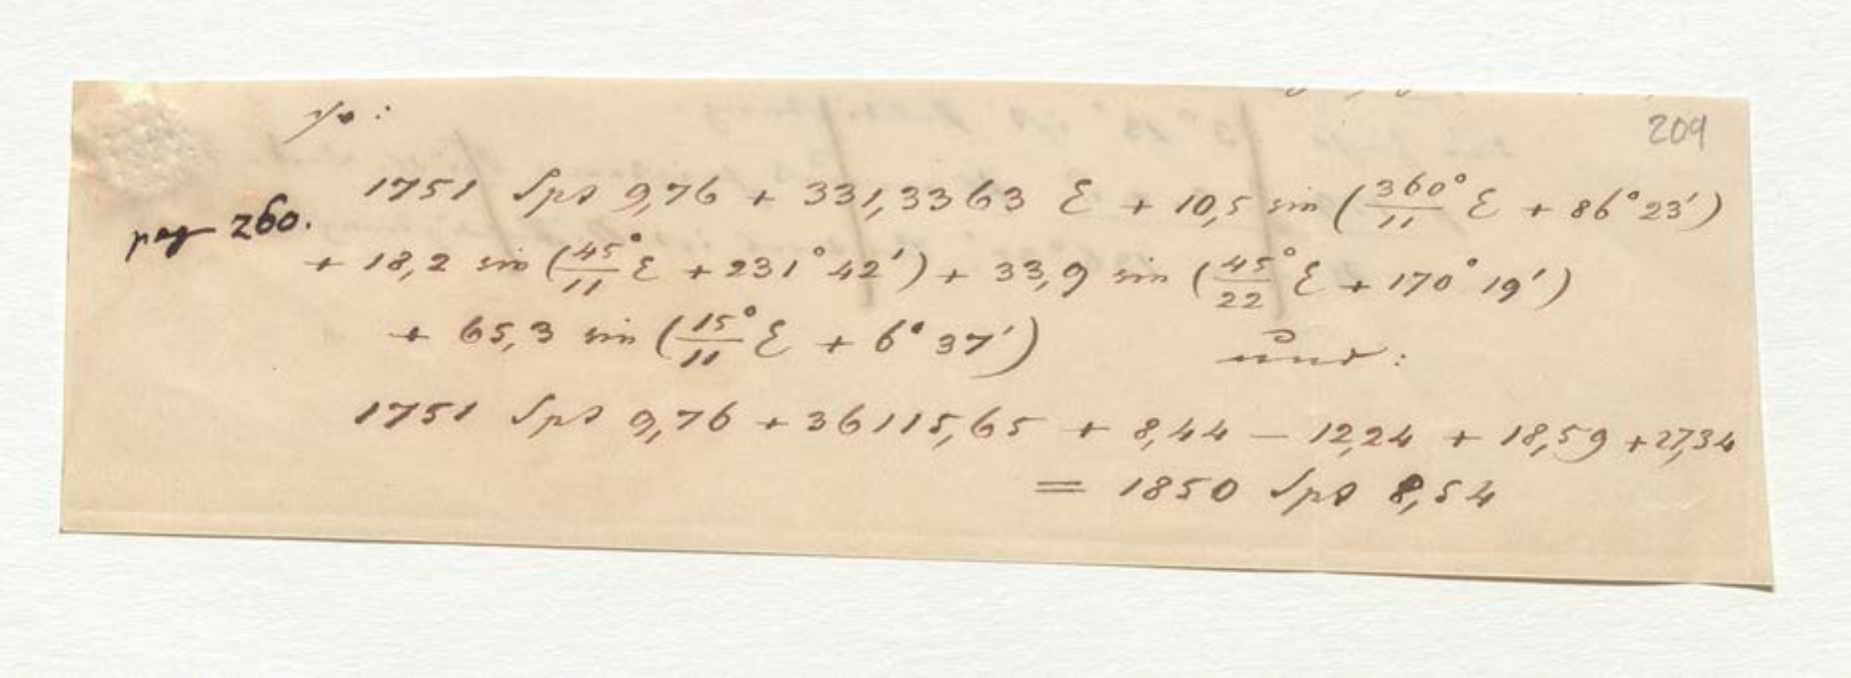 so:
209
pag 260.
1751 Sps 9,76 + 331,3363 ℰ + 10,5 sin (360°/11 ℰ + 86° 23′)
+ 18,2 sin (45°/11 ℰ + 231° 42′) + 33,9 sin (45°/22 ℰ + 170° 19′)
+ 65,3 sin (15°/11 ℰ + 6° 37′) und:
1751 Sps 9,76 + 36115,65 + 8,44 – 12,24 + 18,59 + 27,34
= 1850 Sps 8,54